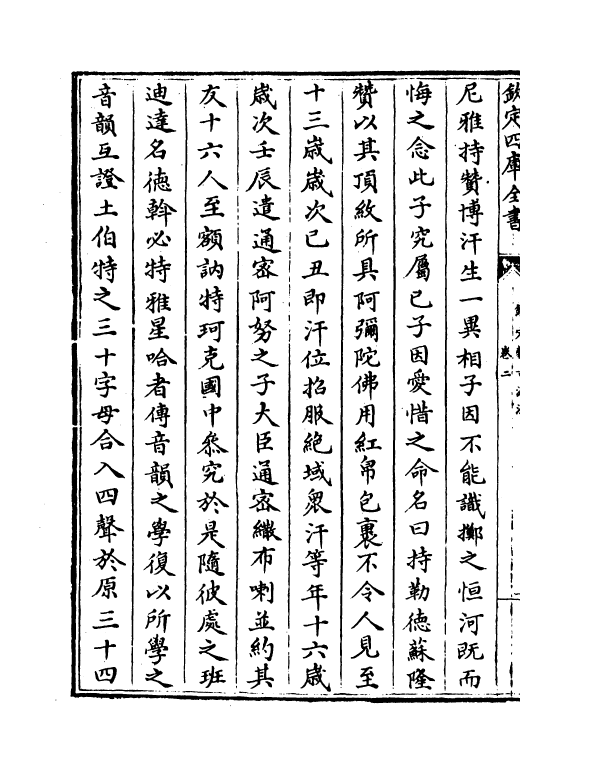 欽定四庫全書
卷二
尼雅持贊博汗生一異相子因不能識擲之恒河既而
悔之念此子究屬己子因愛惜之命名曰持勒德蘇隆
贊以其頂紋所具阿彌陀佛用紅帛包裹不令人見至
十三歲歲次己丑即汗位招服絶域衆汗等年十六歲
歲次壬辰遣通密阿努之子大臣通密纖布喇並約其
友十六人至額訥特珂克國中叅究於是隨彼處之班
迪達名德斡必特雅星哈者傳音韻之學復以所學之
音韻互證土伯特之三十字母合入四聲於原三十四